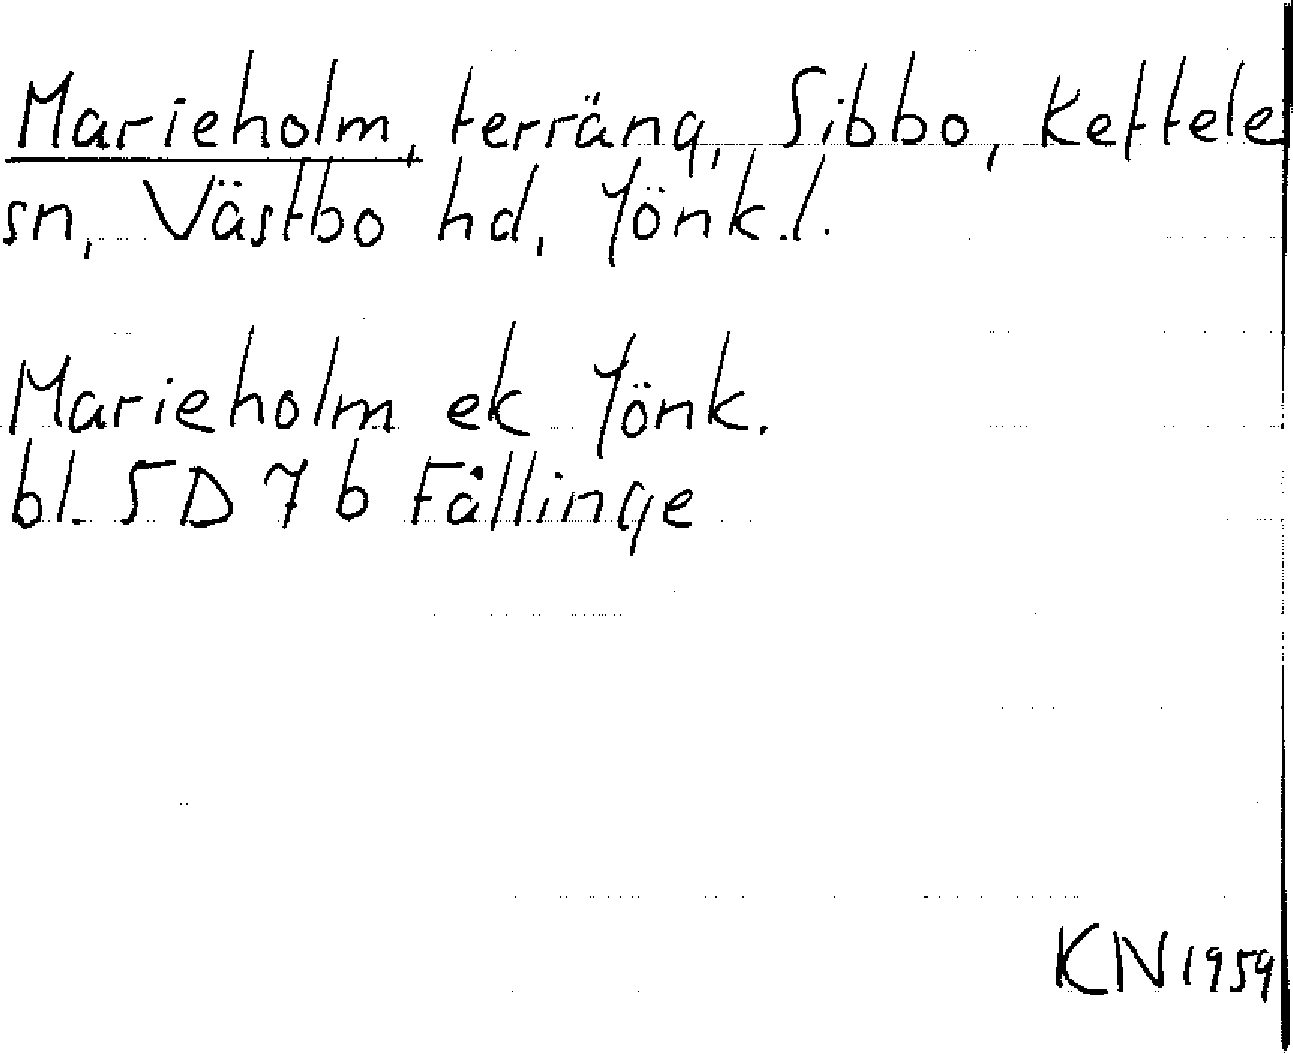 Marieholm, terräng, Sibbo, Kettele
sn, Västbo hd, Jönk.l.
Marieholm ek Jönk.
bl. 5D 7 b Fållinge
KN 1959